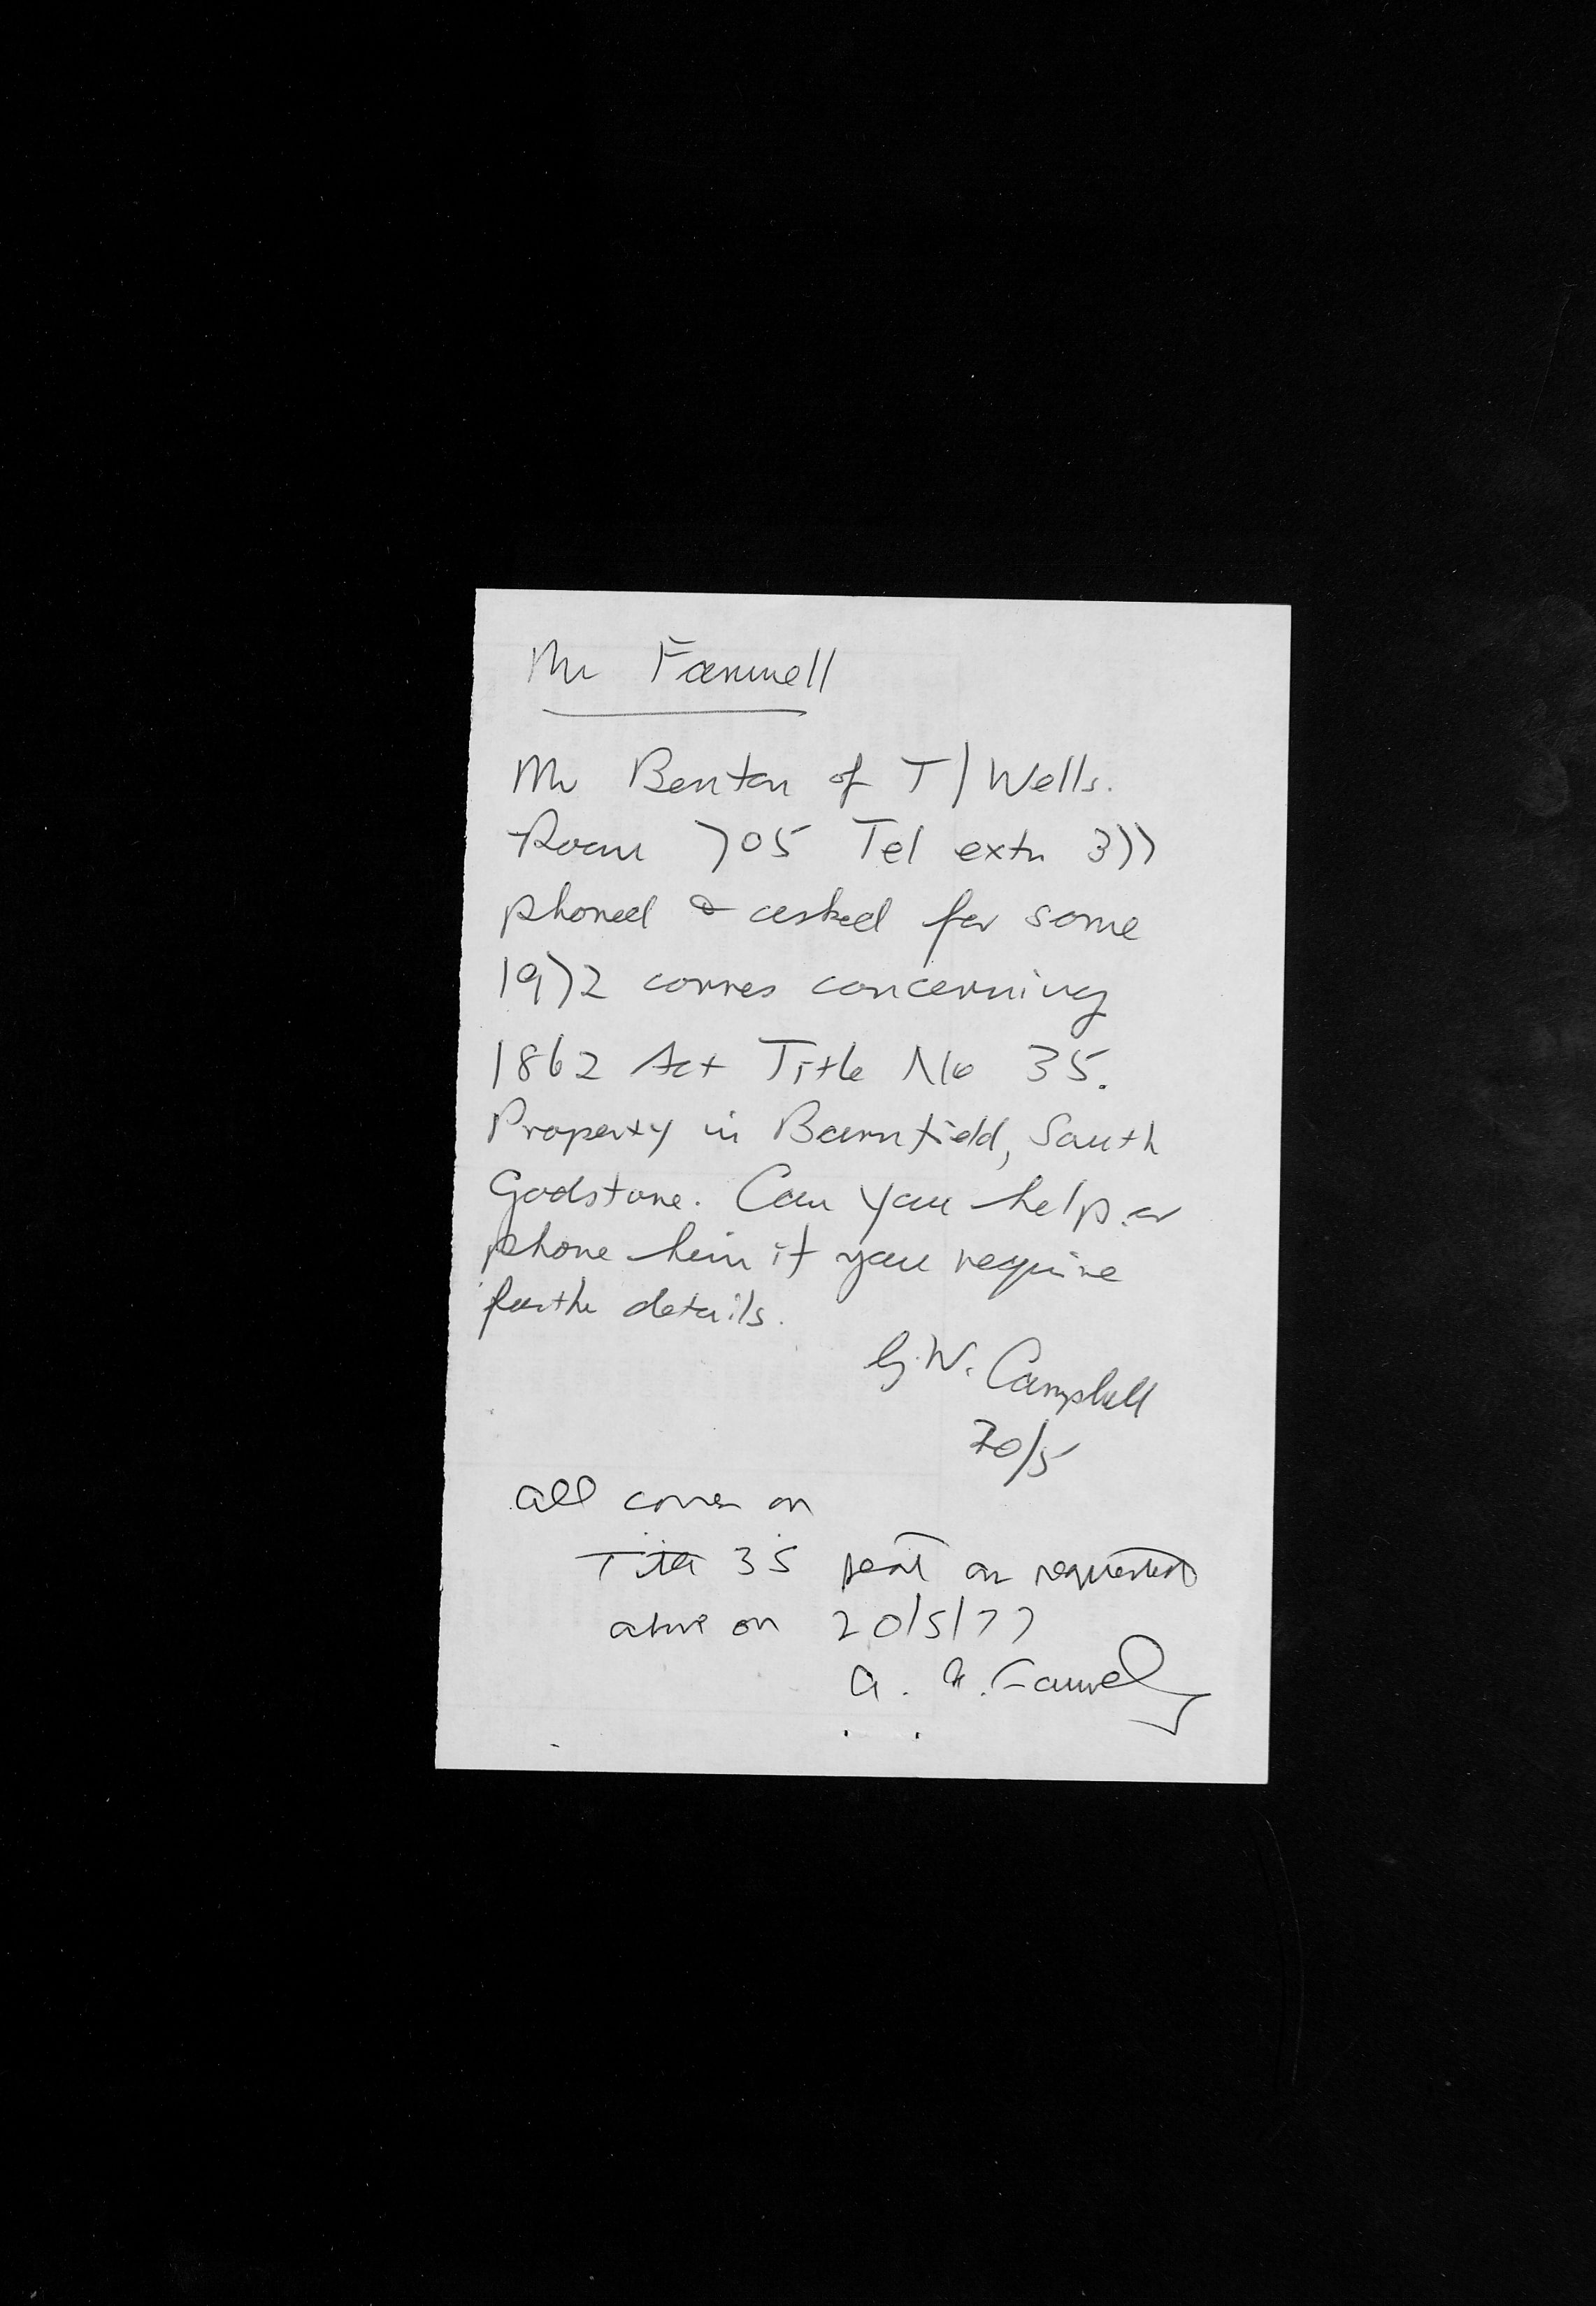 Mr Farwell
Mr Benton of T/Wells.
Room 705 Tel extn 377
phoned & asked for some
1972 corres concerning
1862 Act Title No 35.
Property in Barnfield, South
Godstone. Can you help or
phone him if you require
furthe details.
G.W. Campbell
20/5
all corres on
Title 35 sent as requested
above on 20/5/77
A. Farwell